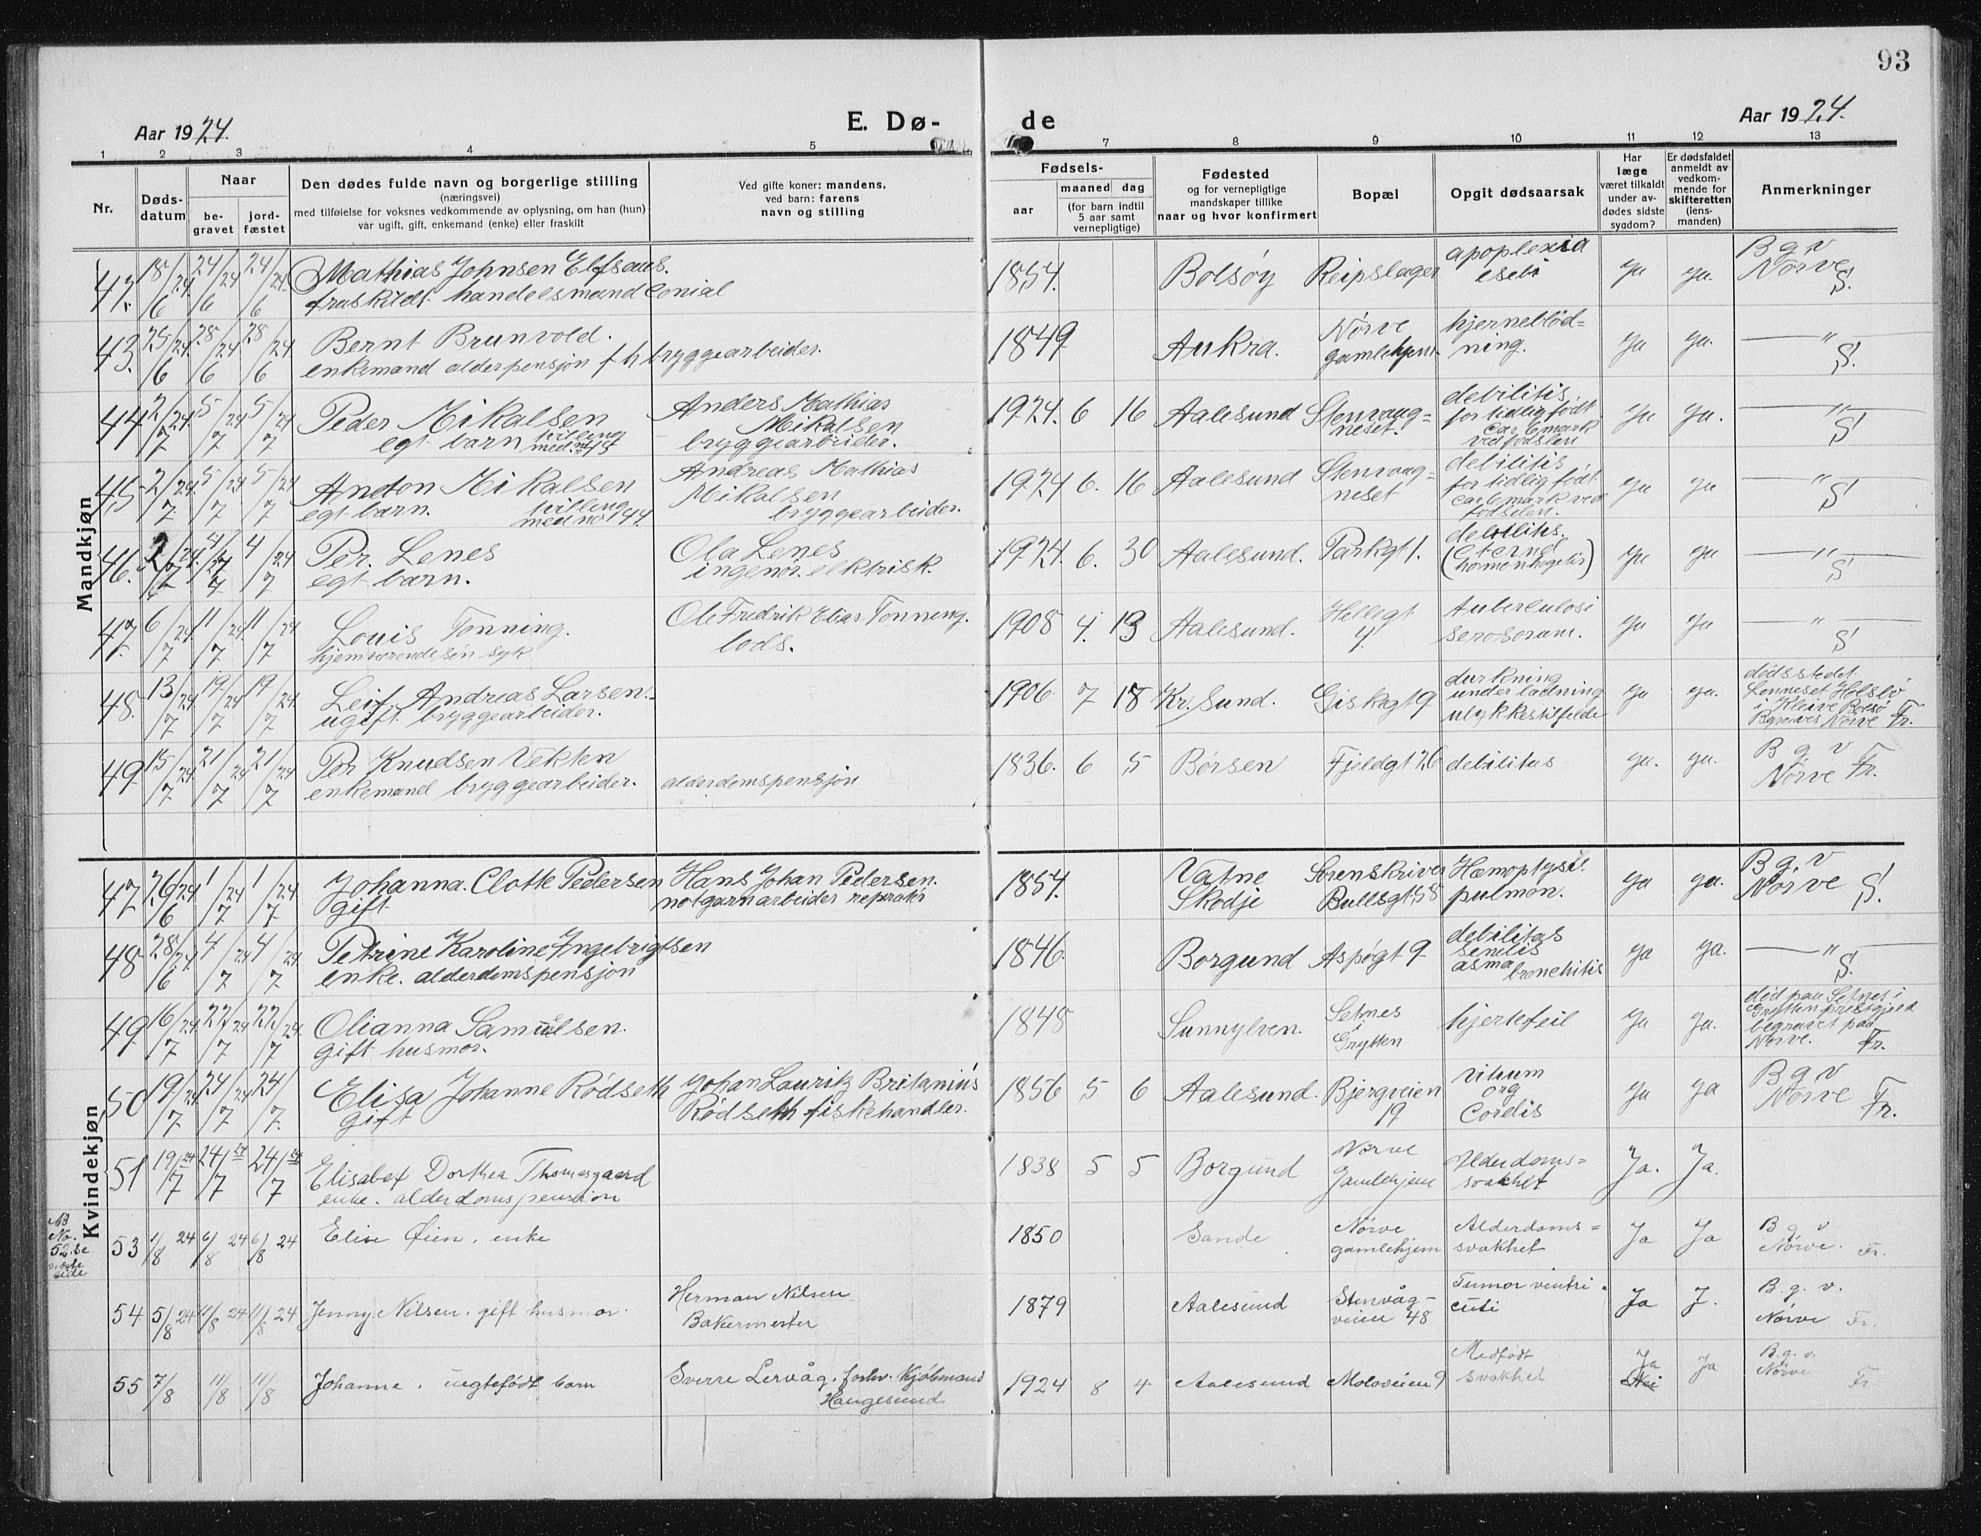 93
Aar 1924.
E. Dø-
de
Aar 1924.
1 2 3 4 5 7 8 9 10 11 12 13
Nr.
Døds-
datum
Naar
be-
gravet
jord-
fæstet
Den dødes fulde navn og borgerlige stilling
(næringsvei)
med tilføielse for voksnes vedkommende av oplysning, om han (hun)
var ugift, gift, enkemand (enke) eller fraskilt
Ved gifte koner: mandens,
ved barn: farens
navn og stilling
Fødsels-
aar
maaned dag
(for barn indtil
5 aar samt
vernepligtige)
Fødested
og for vernepligtige
mandskaper tillike
naar og hvor konfirmert
Bopæl
Opgit dødsaarsak
Har
læge
været tilkaldt
under av-
dødes sidste
sygdom?
Er dødsfaldet
anmeldt av
vedkom-
mende for
skifteretten
(lens-
manden)
Anmerkninger
Mandkjøn
42. 18/6 24. 24/6 24 24/6 24. Mathias Johnsen 1854. Bolsøy Reipslager apoplexia ja ja. B g v
fraskildt handelsmand Nørve
S.
43. 25/6 24 28/6 24 28/6 24 Bernt Brunvold. 1849 Aukra. Nørve hjerneblød= ja ja. — " —
enkemand alderpensjon f h bryggearbeider. gamlehjem ning. S.
44 2/7 24 5/7 24 5/7 24 Peder Mikalsen Anders Mathias 1924. 6 16 Aalesund Stenvaag= debilitis ja ja. — " —
egt barn tvilling Mikalsen neset. for tidlig født S!
med nr 45 bryggearbeider. ved fødselen
45 2/7 24. 5/7 24 5/7 24 Anton Mikalsen Andreas Mathias 1924 6. 16 Aalesund Stenvaag= debilitis ja ja — " —
egt barn. tvilling Mikalsen neset for tidlig født S!
med no 44. bryggearbeider. fødselen.
46. 2/7 24. 4/7 24 4/7 24 Per. Lenes Ola Lenes 1924. 6. 30 Aalesund. Parkgt 1. debilitis. ja ja — " —
egt barn. ingenør. elektrisk. S!
47. 6/7 24. 11/7 24 11/7 24 Louis Tønning. Ole Fredrik Elias Tønning. 1908 4. 13 Aalesund. Hellegt Tuberculosi ja ja "
hjemværende søn syk lods. 4. serosorum. S!
48. 13/7 24 19/7 24 19/7 24 Leif Andreas Larsen. 1906 7 18 Kr. Sund. Giskegt 9 durkning ja ja. dødsstedet
ugift. bryggearbeider. under ladning i Kleive Bolsø
ulykkestilfelde Nørve Fr.
49 15/7 24. 21/7 24 21/7 24 Per Knudsen Vekten 1836. 6 5 Børsen Fjeldgt 26 debilitas ja. ja. B g v
enkemand bryggearbeider. alderdomspensjon Nørve Fr.
Kvindekjøn
47 26/6 24 1/7 24 1/7 24 Johanna. Clotte Pedersen Hans Johan Pedersen. 1857. Vatne Sorenskriver Hæmoptysis ja ja. B g. v
gift notgarnarbeider Skodje Bullsgt 58 pulmon. Nørve S!
48 28/6 24. 4/7 24 4/7 24 Petrine Karoline Ingebrigtsen 1846. Borgund Aspøgt 9 debilitas ja ja. — " —
enke. alderdomspensjon senilis S!
asma bronchitis
49 16/7 24. 22/7 24 22/7 24 Olianna Samuelsen. 1848 Sunnylven. Setnes hjertefeil ja ja. død paa Setnes i
gift husmor. Grytten Grytten prestgjeld
begravet paa
Nørve. Fr.
50 19/7 24 24/7 24 24/7. Elisa Johanne Rødseth Johan Lauritz Britanius 1856 5 6 Aalesund. Bjergveien vitium ja ja B g v
gift Rødseth fiskehandler. 19 org Nørve Fr.
Cordis
51 19/7 24 24/7 24 24/7 24 Elisabet Dorthea Thomasgaard 1838 5 5 Borgund Nørve Alderdoms= Ja. Ja.
enke. alderdomspension Gamlehjem svakhet
NB
No.
52.se
næste
side
53 1/8 24 6/8 24 6/8 24 Elise Øien, enke 1850 Sande Nörve Alderdoms= Ja Ja B g. v.
gamlehjem svakhet Nörve. Fr.
54 5/8 24 11/8 24 11/8 24 Jenny Nilsen. gift husmor. Herman Nilsen 1879 Aalesund Stenvåg- Tumor ventri- Ja J. B. g. v.
Bakermester veien 48 culi Nörve Fr.
55 7/8 11/8 11/8 Johanne. uegtefödt barn Sverre Lervåg, forhv. Kjöbmand 1924 8 4 Aalesund Moloveien 9 Medfödt Ja Ja B. g. v.
Haugesund svakhet Nei Nörve Fr.